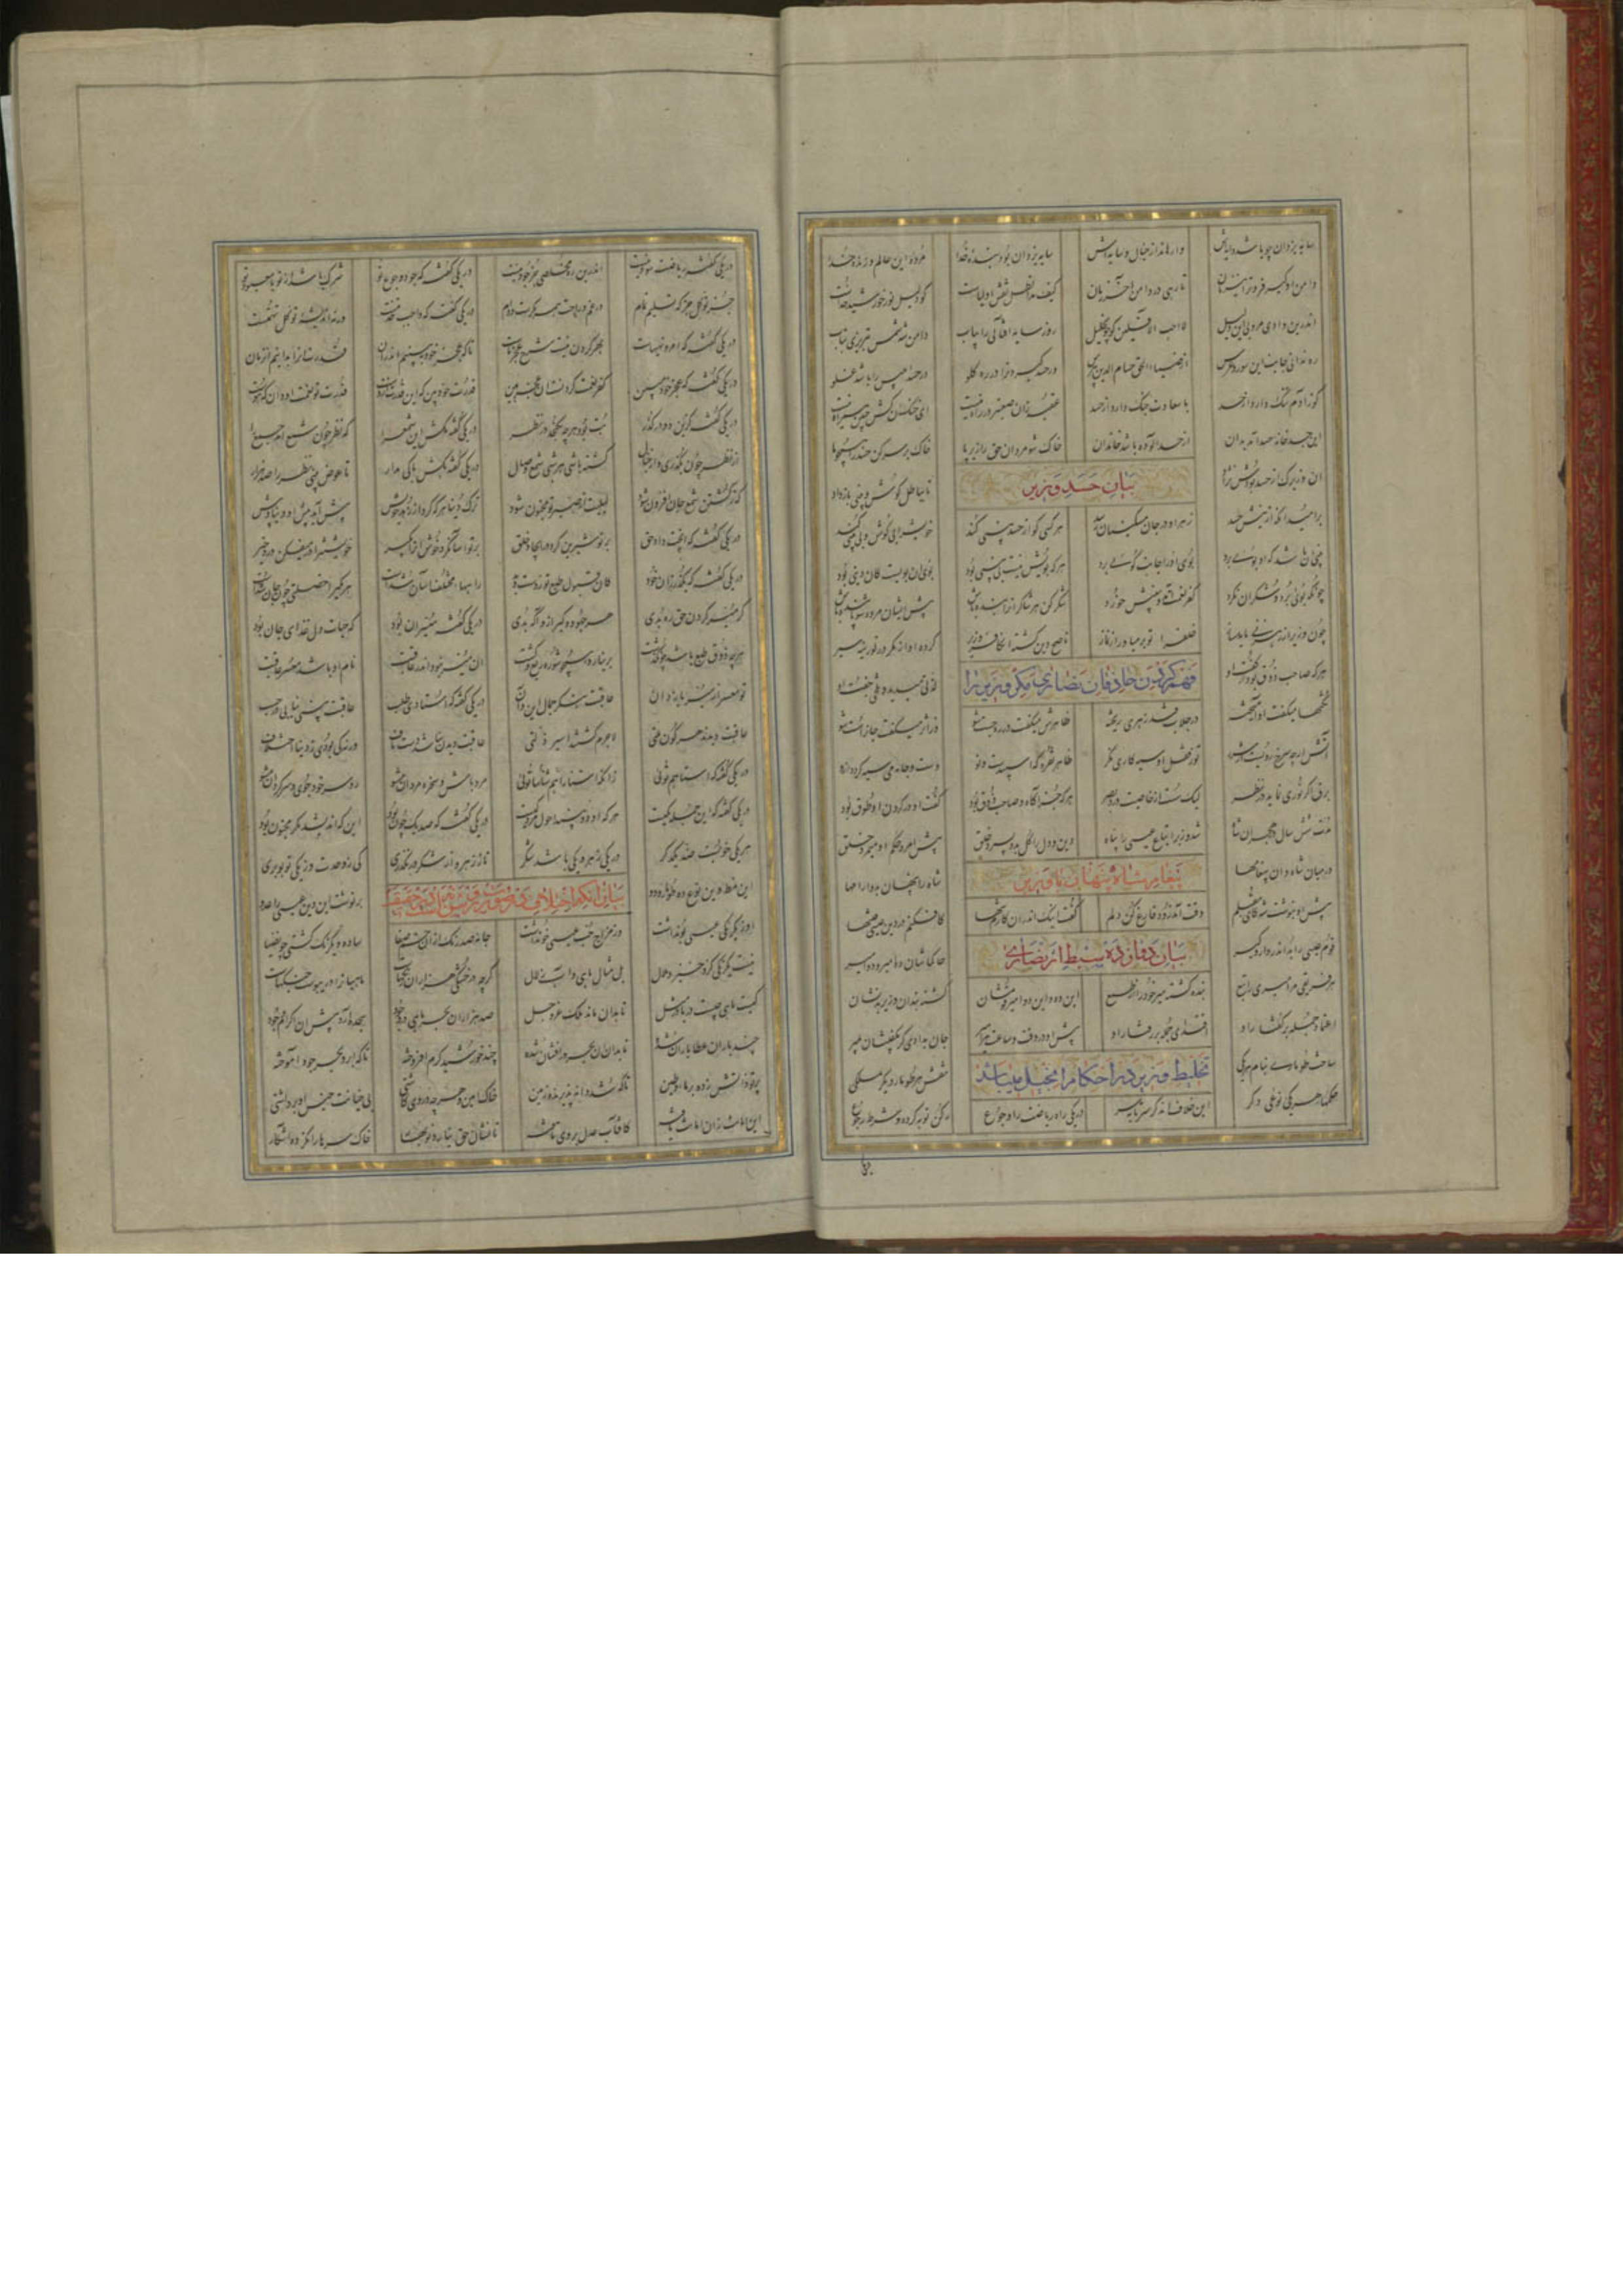 سایه یزدان چو باشد دایه‌اش وارهاند از خیال و سایه‌اش سایه یزدان بود بنده خدا مرده این عالم و زنده خدا
دامن او گیر زوتر بیگمان تا رهی در دامن آخر زمان کیف مد الظل نقش اولیاست کو دلیل نور خورشید خداست
اندرین وادی مرو بی این دلیل لا احب الافلین گو چون خلیل رو ز سایه آفتابی را بیاب دامن شه شمس تبریزی بتاب
ره ندانی جانب این سور و عرس از ضیاء الحق حسام الدین بپرس ور حسد گیرد ترا در ره گلو در حسد ابلیس را باشد غلو
کو ز آدم ننگ دارد از حسد با سعادت جنگ دارد از حسد عقبه زین صعبتر در راه نیست ای خنک آنکش حسد همراه نیست
این جسد خانه حسد آمد بدان از حسد آلوده باشد خاندان خاک شو مردان حق را زیر پا خاک بر سر کن حسد را همچو ما
آن وزیرک از حسد بودش نژاد تا بباطل گوش و بینی باد داد
بیان حسد وزیر
بر امید آنکه از نیش حسد زهر او در جان مسکینان رسد هر کسی کو از حسد بینی کند خویش را بی گوش و بی بینی کند
بینی آن باشد که او بویی برد بوی او را جانب کویی برد هر که بویش نیست بی بینی بود بوی آن بویست کان دینی بود
چونکه بویی برد و شکر آن نکرد کفر نعمت آمد و بینیش خورد شکر کن مر شاکران را بنده باش پیش ایشان مرده شو پاینده باش
چون وزیر از رهزنی مایه مساز خلق را تو بر میاور از نماز ناصح دین گشته آن کافر وزیر کرده او از مکر در لوزینه سیر
هر که صاحب ذوق بود از گفت او لذتی میدید و تلخی جفت او
فهم کردن حاذقان نصاری مکر وزیر را
نکتها میگفت او آمیخته در جلاب قند زهری ریخته ظاهرش میگفت در ره چست شو وز اثر میگفت جان را سست شو
آتش ار چه سرخ رویست از شرر تو ز فعل او سیه کاری نگر ظاهر نقره گر اسپیدست و نو دست و جامه می سیه گردد ازو
برق اگر نوری نماید در نظر لیک هست از خاصیت دزد بصر هر که جز آگاه و صاحب ذوق بود گفت او در گردن او طوق بود
مدت شش سال در هجران شاه شد وزیر اتباع عیسی را پناه دین و دل را کل بدو بسپرد خلق پیش امر و حکم او میمرد خلق
در میان شاه و او پیغامها شاه را پنهان بدو آرامها
پیغام شاه پنهان با وزیر
پیش او بنوشت شه کای مقبلم وقت آمد زود فارغ کن دلم گفت اینک اندران کارم شها کافکنم در دین عیسی فتنها
قوم عیسی را بد اندر دار و گیر حاکمانشان ده امیر و دو امیر
بیان دوازده سبط از نصاری
هر فریقی مر امیری را تبع بنده گشته میر خود را از طمع این ده و این دو امیر و قومشان گشته بند آن وزیر بد نشان
اعتماد جمله بر گفتار او اقتدای جمله بر رفتار او پیش او در وقت و ساعت هر امیر جان بدادی گر بگفتیشان بمیر
ساخت طوماری بنام هر یکی نقش هر طومار دیگر مسلکی
تخلیط وزیر در احکام انجیل میباشد
حکمهای هر یکی نوعی دگر این خلاف آن در یکی راه ریاضت را و جوع رکن توبه کرده و شرط رجوع
در یکی گفته ریاضت سود نیست اندرین ره مخلصی جز جود نیست در یکی گفته که جود و جوع تو شرک باشد از تو با معبود تو
جز توکل جز که تسلیم تمام در غم و راحت همه مکرست و دام در یکی گفته که واجب خدمتست ورنه اندیشه توکل تهمتست
در یکی گفته که امر و نهیهاست بهر کردن نیست شرح عجز ماست تا که عجز خود ببینیم اندران قدرت او را بدانیم آن زمان
در یکی گفته که عجز خود مبین کفر نعمت کردنست آن عجز هین قدرت خود بین که این قدرت ازوست قدرت تو نعمت او دان که هوست
در یکی گفته کزین دو در گذر بت بود هر چه بگنجد در نظر در یکی گفته مکش این شمع را که نظر چون شمع آمد جمع را
از نظر چون بگذری و از خیال کشته باشی نیم شب شمع وصال در یکی گفته بکش باکی مدار تا عوض بینی نظر را صد هزار
که ز کشتن شمع جان افزون شود لیلیت از صبر تو مجنون شود ترک دنیا هر که کرد از زهد خویش پیش آید پیش او دنیا و پیش
در یکی گفته که آنچت داد حق بر تو شیرین کرد در ایجاد حق بر تو آسان کرد و خوش آن را بگیر خویشتن را در میفکن در زحیر
در یکی گفته که بگذار آن خود کان قبول طبع تو ردست و بد راههای مختلف آسان شدست هر یکی را ملتی چون جان شدست
گر میسر کردن حق ره بدی هر جهود و گبر ازو آگه بدی در یکی گفته میسر آن بود که حیات دل غذای جان بود
هر چه ذوق طبع باشد چون گذشت بر نیارد همچو شوره ریع و کشت آن میسر نبود اندر عاقبت نام او باشد معسر عاقبت
تو معسر از میسر باز دان عاقبت بنگر جمال این و آن در یکی گفته که استادی طلب عاقبت بینی نیابی در حسب
عاقبت دیدند هر گون ملتی لاجرم گشتند اسیر زلتی عاقبت دیدن نباشد دست باف ورنه کی بودی ز دینها اختلاف
در یکی گفته که استا هم تویی زانکه استا را هم شناسا تویی مرد باش و سخره مردان مشو رو سر خود جوی و سر گردان مشو
در یکی گفته که این جمله یکیست هر که او دو بیند احول مردکیست در یکی گفته که صد یک چون بود این که اندیشد مگر مجنون بود
هر یکی قولیست ضد یکدگر در یکی زهر و یکی باشد شکر تا ز زهر و از شکر در نگذری کی ز وحدت وز یکی تو بو بری
این نمط وین نوع ده طومار و دو بر نوشت آن دین عیسی را عدو
بیان آنکه اختلاف در صورت و روش است نه در حقیقت
او ز یکرنگی عیسی بو نداشت وز مزاج خم عیسی خو نداشت جامه صد رنگ از آن خم صفا ساده و یکرنگ گشتی چون ضیا
نیست یکرنگی کزو خیزد ملال بل مثال ماهی و آب زلال گر چه در خشکی هزاران رنگهاست ماهیان را با یبوست جنگهاست
کیست ماهی چیست دریا در مثل تا بدان ماند ملک عز و جل صد هزاران بحر و ماهی در وجود سجده آرد پیش آن اکرام و جود
چند باران عطا باران شده تا بدان آن بحر در افشان شده چند خورشید کرم افروخته تا که ابر و بحر جود آموخته
پرتو دانش زده بر ماء و طین تا که شد دانه پذیرنده زمین خاک امین و هر چه در وی کاشتی بی خیانت جنس آن برداشتی
این امانت زان امانت یافته کافتاب عدل بر وی تافته تا نشان حق نیارد نوبهار خاک سرها را نکرده آشکار